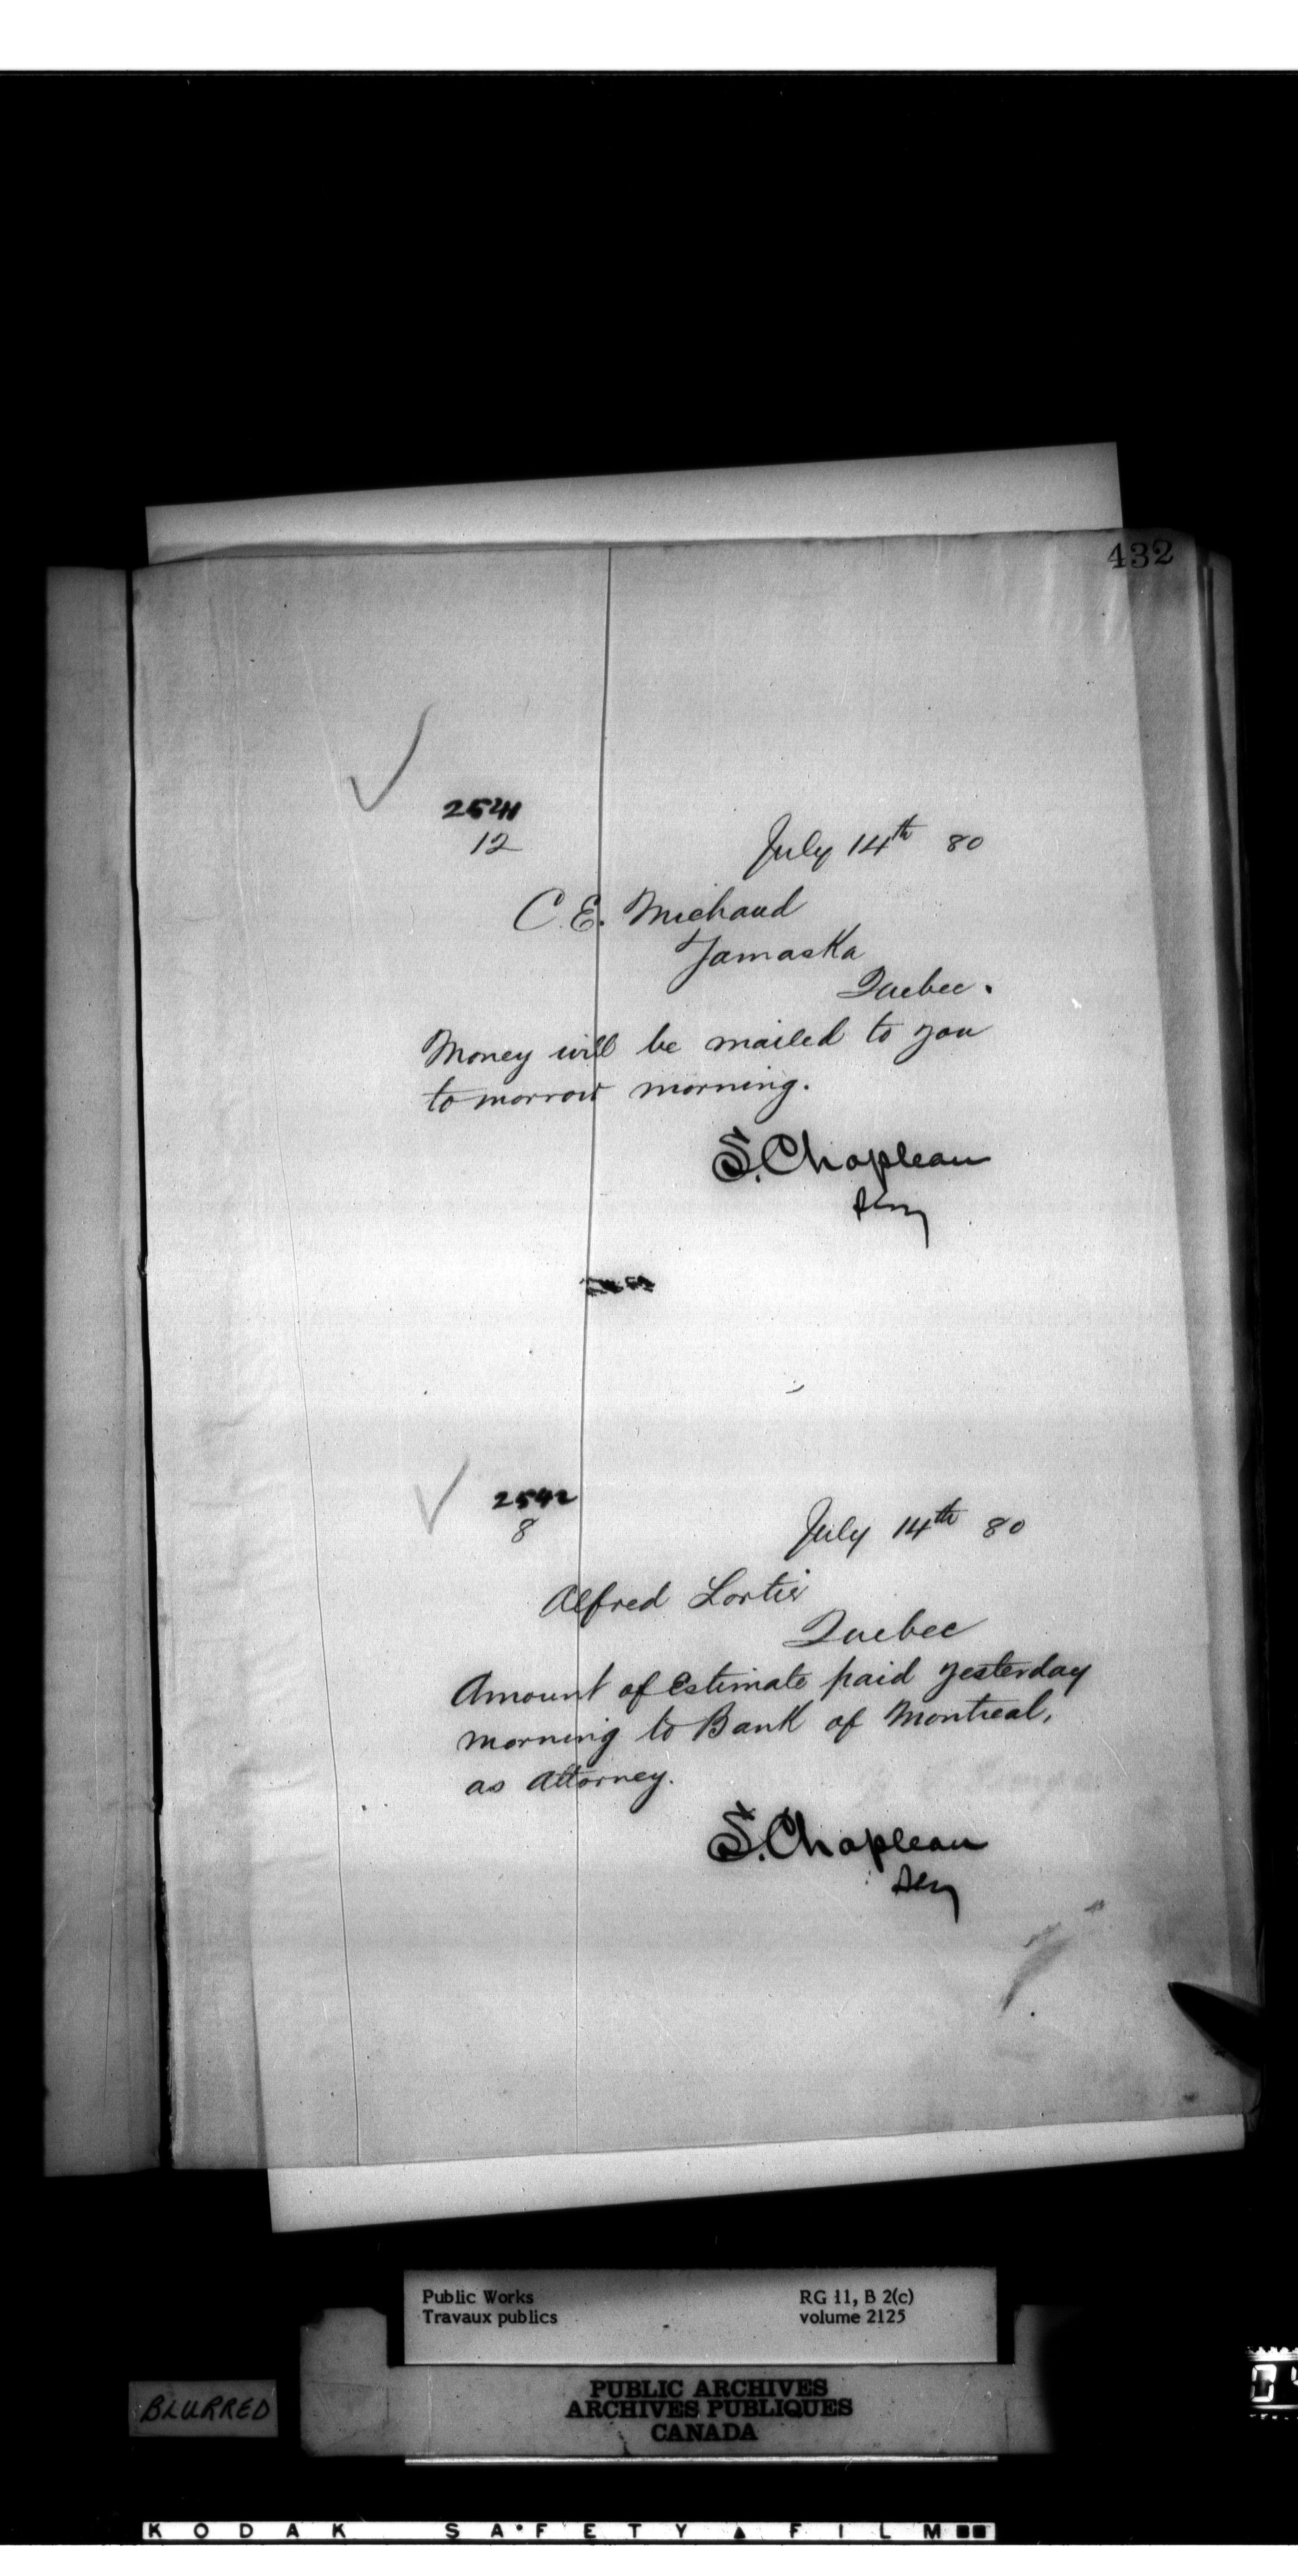 432
2541
12
July 14th 80
C. E. Michaud
Yamaska
Quebec.
Money will be mailed to you
to morrow morning.
S. Chapleau
Secy
2542
8
July 14th 80
Alfred Lortie
Quebec
Amount of Estimate paid yesterday
morning to Bank of Montreal,
as Attorney.
S. Chapleau
Secy
Public Works
Travaux publics
RG 11, B 2(c)
volume 2125
BLURRED
PUBLIC ARCHIVES
ARCHIVES PUBLIQUES
CANADA
KODAK SAFETY FILM